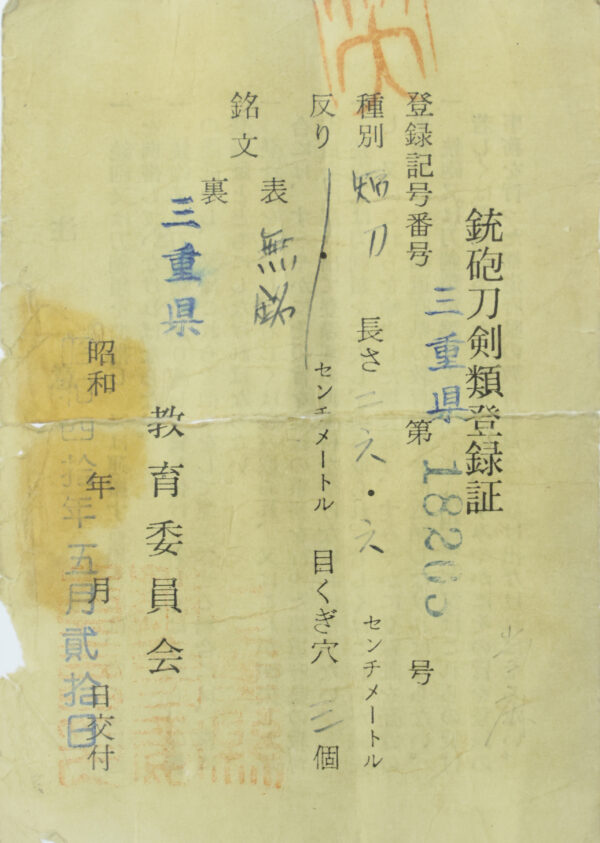 銃砲刀剣類登録証
登録記号番号 三重県 第 18265 号
種別 短刀 長さ 二六・六 センチメートル
反り ・ センチメートル 目くぎ穴 三 個
銘文 表 無銘
裏
三重県 教育委員会
昭和四拾年五月貳拾日交付